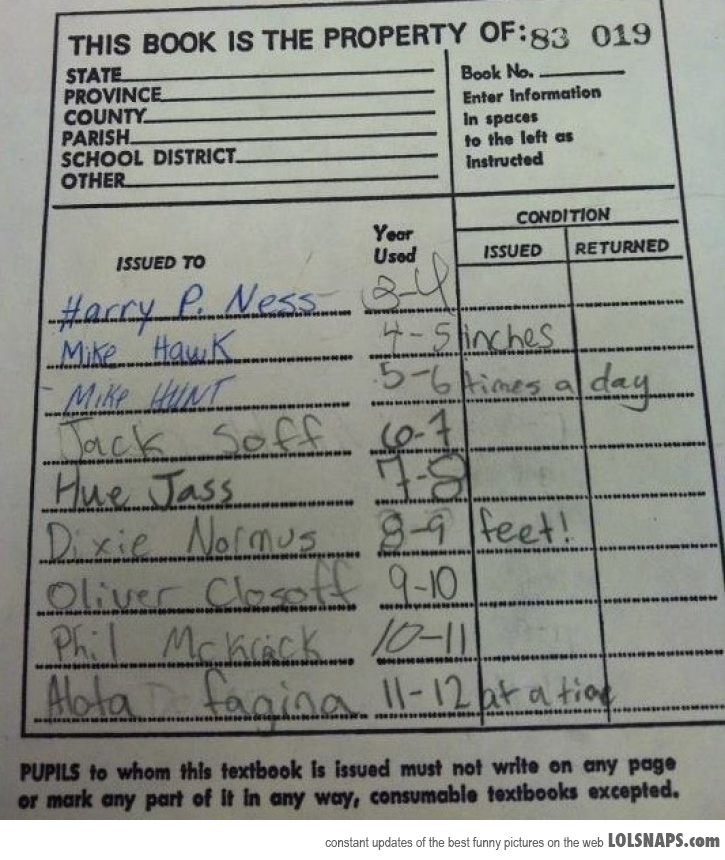 THIS BOOK IS THE PROPERTY OF: 83 019
STATE
PROVINCE
COUNTY
PARISH
SCHOOL DISTRICT
OTHER
Book No.
Enter information
in spaces
to the left as
instructed
CONDITION
ISSUED TO Year Used ISSUED RETURNED
Harry P. Ness 3-4
Mike Hawk 4-5 inches
Mike HUNT 5-6 times a day
Jack Soff 6-7
Hue Jass 7-8
Dixie Normus 8-9 feet!
Oliver Closoff 9-10
Phil McKrack 10-11
Alota fagina 11-12 at a time
PUPILS to whom this textbook is issued must not write on any page
or mark any part of it in any way, consumable textbooks excepted.
constant updates of the best funny pictures on the web LOLSNAPS.com